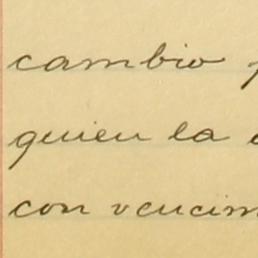 cambio
quien la
con vencim